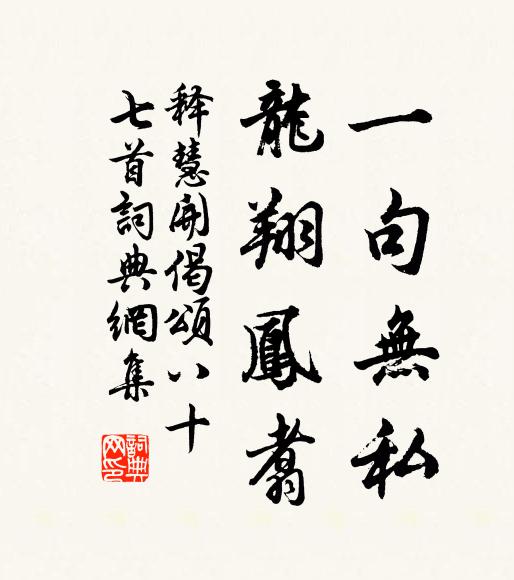 一句無私
龍翔鳳翥
释慧開偈頌八十
七首詞典網集
詞典
网印